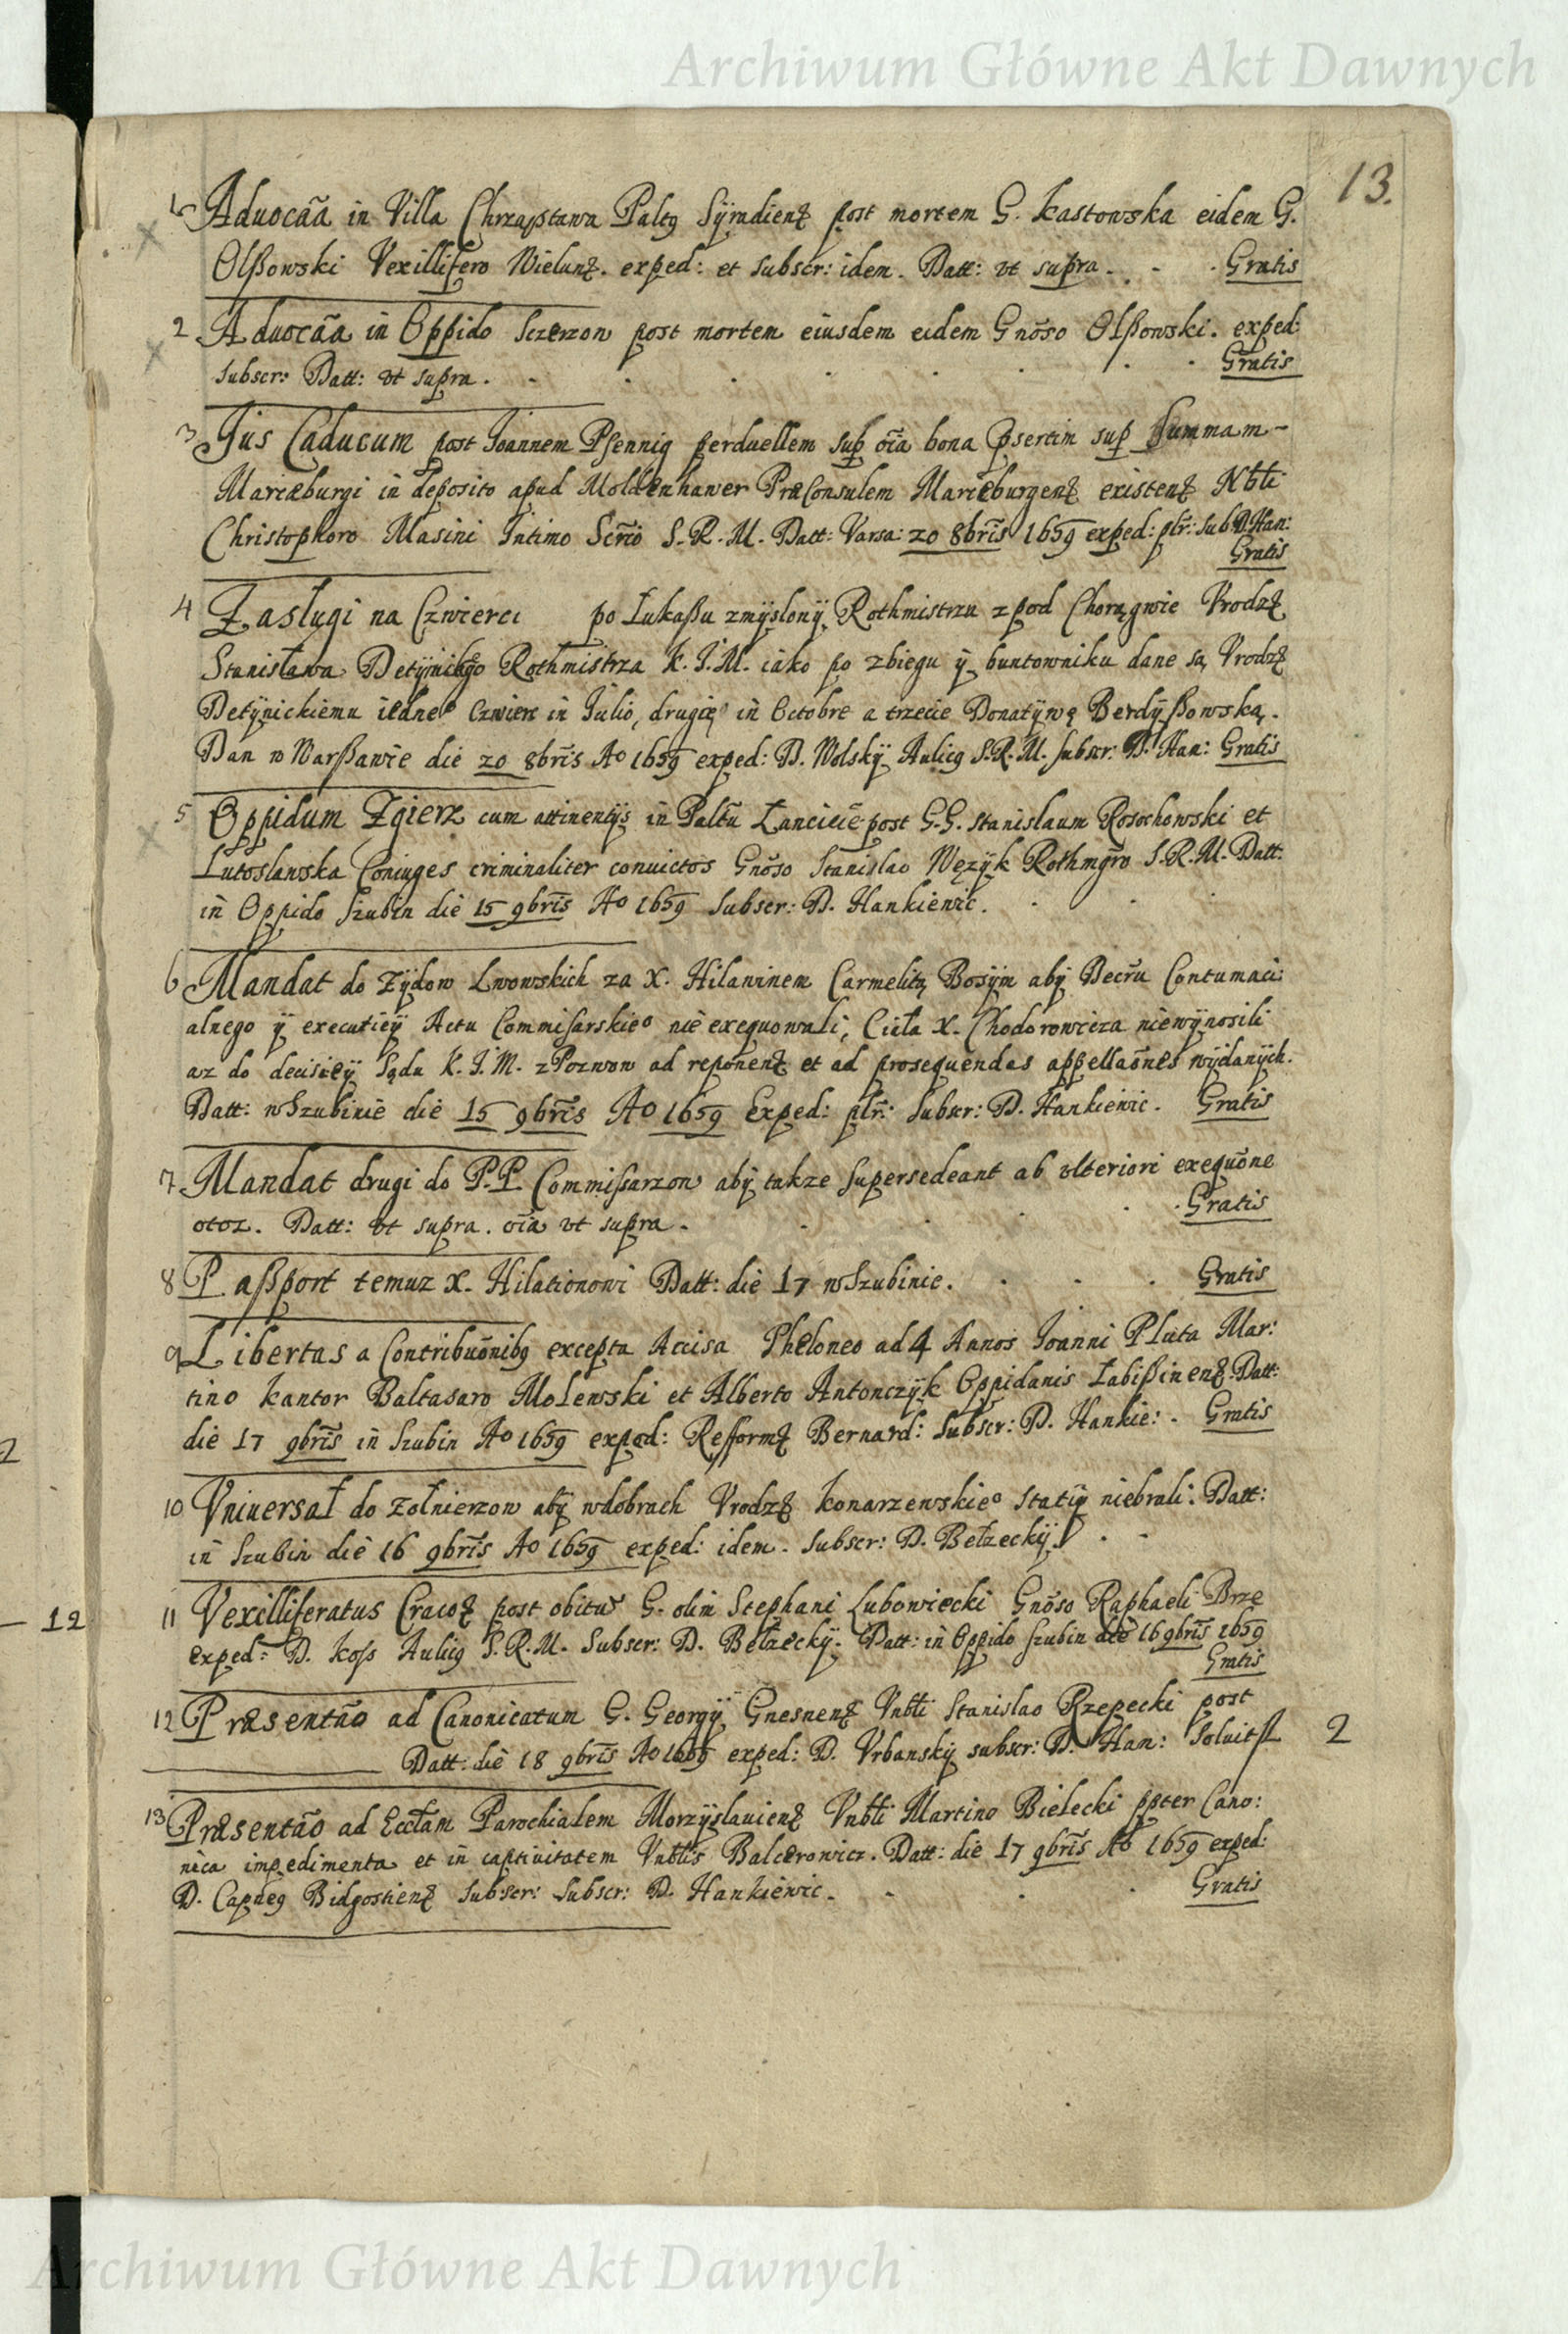 Archiwum Główne Akt Dawnych
13.
1 Aduocãa in Villa Chrząstawa Paltus Syradienẜ post mortem G. Kastowska eidem G.
Olßowski Vexillifero Wielunẜ. exped: et subscr: idem. Datt: vt supra. Gratis
2 Aduocãa in Oppido Sczerzow post mortem eiusdem eidem Gnõso Olßowski. exped:
subscr: Datt: vt supra. Gratis
3 Jus Caducum post Joannem Pfennig perduellem sup oĩa bona psertim sup Summam
Mariæburgi in deposito apud Moldenhawer PræConsulem Mariæburgenẜ existenẜ Nbli
Christophoro Masini Intimo Scrio S.R.M. Datt: Varsa: 20 8bris 1659 exped: ptr: sub D. Han:
Gratis
4 Zaslugi na Czwierci po Łukaßu zmyslony Rothmistrzu z pod Chorągwie Vrodzẜ
Stanisława Detynikgo Rothmistrza K.J.M. iako po zbiegu y buntowniku dane są Vrodzẜ
Detynickiemu iedneº Czwierc in Julio, drugięº in Octobre a trzecie Donatywę Berdyßowską.
Dan w Warßawie die 20 8bris Aº 1659 exped: D. Wolsky Aulicus S.R.M. subscr: D. Han: Gratis
5 Oppidum Zgierz cum attinentijs in Paltũ Łancicie post G.G. Stanislaum Rosochowski et
Lutoslawska Coniuges criminaliter conuictos Gnõso Stanislao Wężyk Rothmgro S.R.M. Datt:
in Oppido Szubin die 15 9bris Aº 1659 Subscr: D. Hankiewic.
6 Mandat do Zydow Lwowskich za X. Hilarinem Carmelitą Bosym aby Decru Contumaci
alnego y executiey Actu Commisarskieº nie exequowali, Ciała X. Chodorowicza niewynosili
az do decisiey Sądu K.J.M. z Pozwow ad reponenẜ et ad prosequendas appellaõnes wydanych.
Datt: w Szubinie die 15 9bris Aº 1659 Exped: ptr: Subscr: D. Hankiewic. Gratis
7 Mandat drugi do P.P. Commißarzow aby takze Supersedeant ab vlteriori exequõne
otoz. Datt: vt supra. oĩa vt supra. Gratis
8 Paßport temuz X. Hilarionowi Datt: die 17 w Szubinie. Gratis
9 Libertas a Contribuõnibus excepta Accisa Pheloneo ad 4 Annos Joanni Pluta Mar:
tino Kantor Baltasaro Molewski et Alberto Antonczyk Oppidanis Łabißinenẜ. Datt:
die 17 9bris in Szubin Aº 1659 exped: Refformẜ Bernard: Subscr: D. Hankie: Gratis
10 Vniuersał do Zołnierzow aby w dobrach Vrodzẜ Konarzewskieº statiy niebrali. Datt:
in Szubin die 16 9bris Aº 1659 exped: idem. Subscr: D. Bełzecky
11 Vexilliferatus Cracoẜ post obitu G. olim Stephani Lubowiecki Gnõso Raphaeli Brze
exped: D. Koss Aulicus S.R.M. Subscr: D. Bełzecky. Datt: in Oppido Szubin die 16 9bris 1659
Gratis
12 Præsentão ad Canonicatum G. Georgij Gnesnenẜ Vnbli Stanislao Rzepecki post
Datt: die 18 9bris Aº 1659 exped: D. Vrbansky subscr: D. Han: Soluit fl 2
13 Præsentão ad Eccłam Parochialem Morzyslauienẜ Vnbli Martino Bielecki ppter Cano:
nica impedimenta et in captiuitatem Vnblis Balcerowicz. Datt: die 17 9bris Aº 1659 exped:
D. Capneus Bidgostienẜ Subscr: Subscr: D. Hankiewic. Gratis
12
Archiwum Główne Akt Dawnych